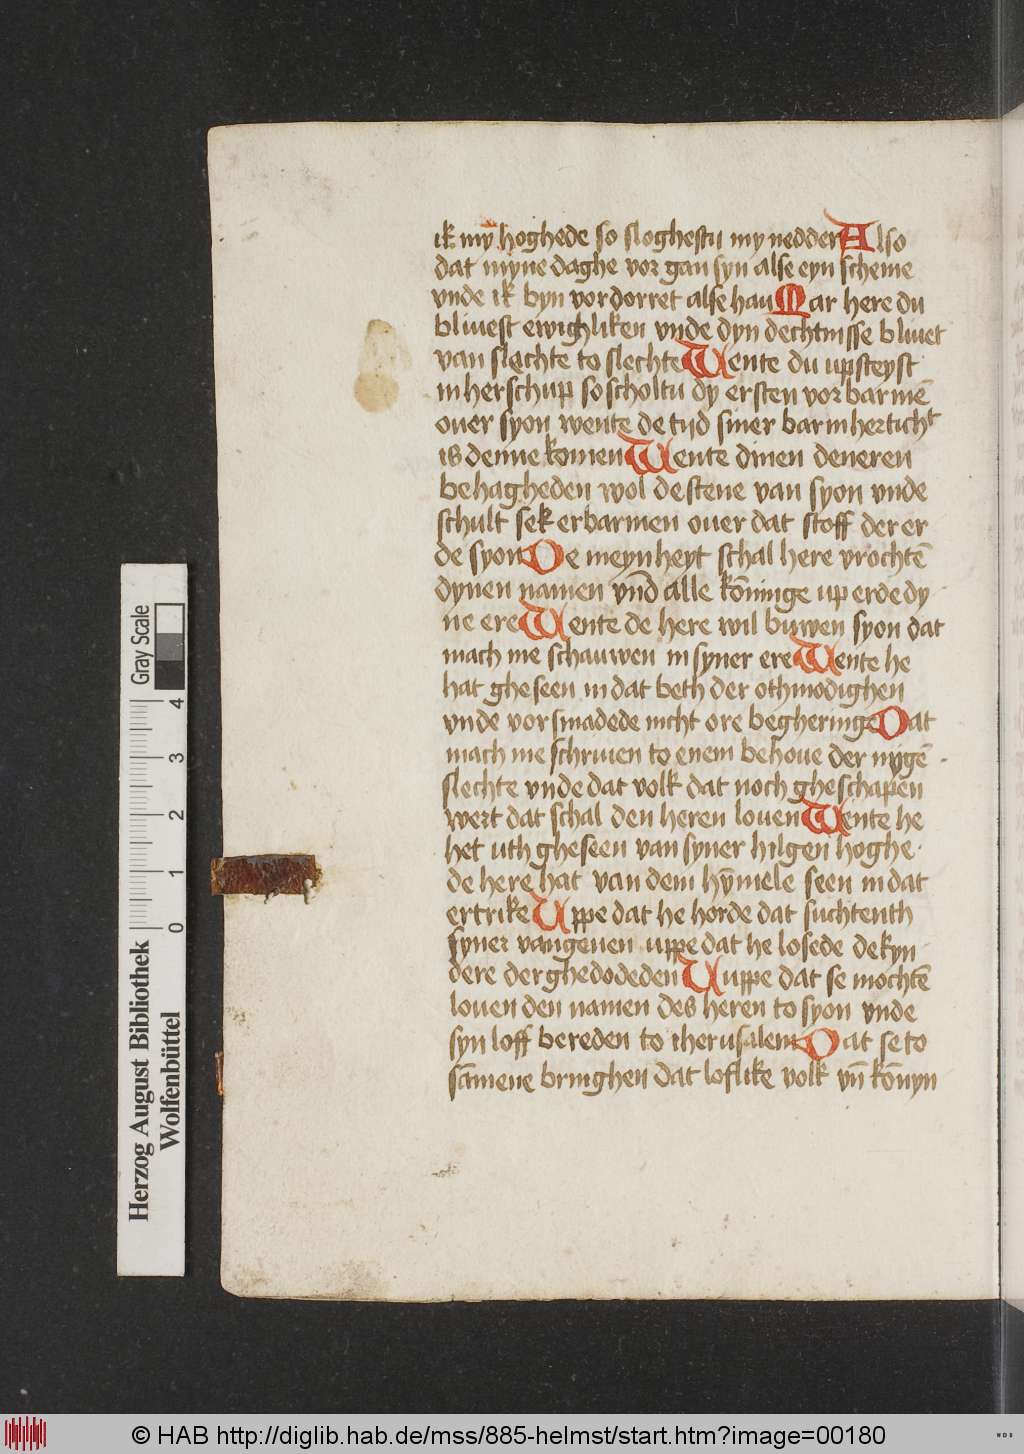 ik my hoghede so sloghestu my nedder Also
dat myne daghe vor gan syn alse eyn scheme
vnde ik byn vordorret alse hau Mar here du
bliuest ewichliken vnde dyn dechtnisse bliuet
van slechte to slechte Wente du upsteyst
in herschup so scholtu dy ersten vorbarmē
ouer syon wente de tijd siner barmherticht
is denne komen Wente dinen deneren
behagheden wol de stene van syon vnde
schult sek erbarmen ouer dat stoff der er
de syon De meynheyt schal here vrochtē
dynen namen vnd alle kōninge up erde dy
ne ere Wente de here wil buwen syon dat
mach me schauwen in syner ere Wente he
hat gheseen in dat beth der othmodighen
vnde vorsmadede nicht ore begheringe Dat
mach me schriuen to enem behoue der nygē
slechte vnde dat volk dat noch gheschapen
wert dat schal den heren louen Wente he
het uth gheseen van syner hilgen hoghe
de here hat van dem hȳmele seen in dat
ertrike Uppe dat he horde dat suchtenth
syner vangenen uppe dat he losede de kyn
dere der ghedodeden Uuppe dat se mochtē
louen den namen des heren to syon vnde
syn loff bereden to iherusalem Dat se to
sāmene bringhen dat loflike volk vn̄ kōnyn
Herzog August Bibliothek
Wolfenbüttel
0 1 2 3 4
Gray Scale
© HAB http://diglib.hab.de/mss/885-helmst/start.htm?image=00180